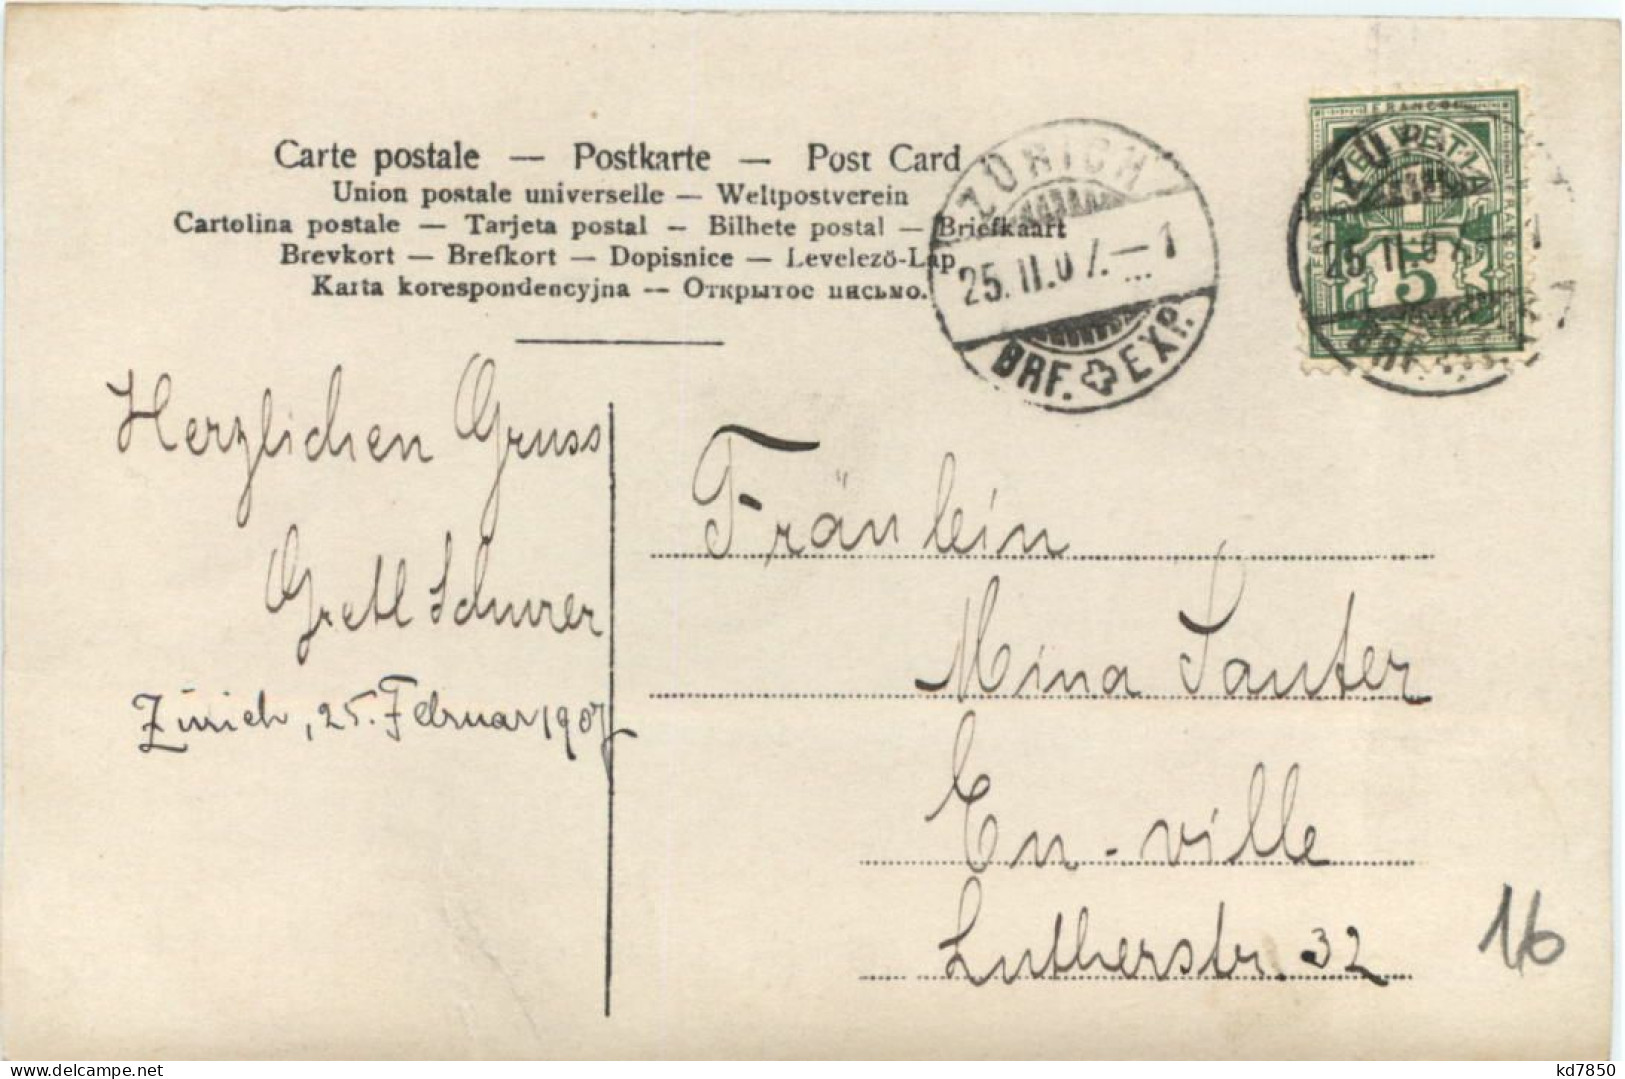 Carte postale — Postkarte — Post Card
Union postale universelle — Weltpostverein
Cartolina postale — Tarjeta postal — Bilhete postal — Briefkaart
Brevkort — Brefkort — Dopisnice — Levelező-Lap
Karta korespondencyjna — Открытое письмо.
ZÜRICH
25.II.07.—1
BRF. EXP.
FRANCO
HELVETIA
5
25.II.07.—1
BRF.
Herzlichen Gruss
Gretl Schurer
Zürich, 25. Februar 1907
Fräulein
Mina Sauter
En-ville
Lutherstr. 32
16
delcampe.net
kd7850